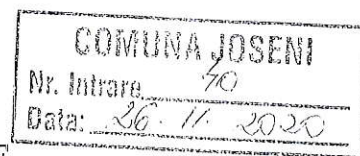 COMUNA JOSENI
Nr. Intrare 40
Data: 26. 11. 2020